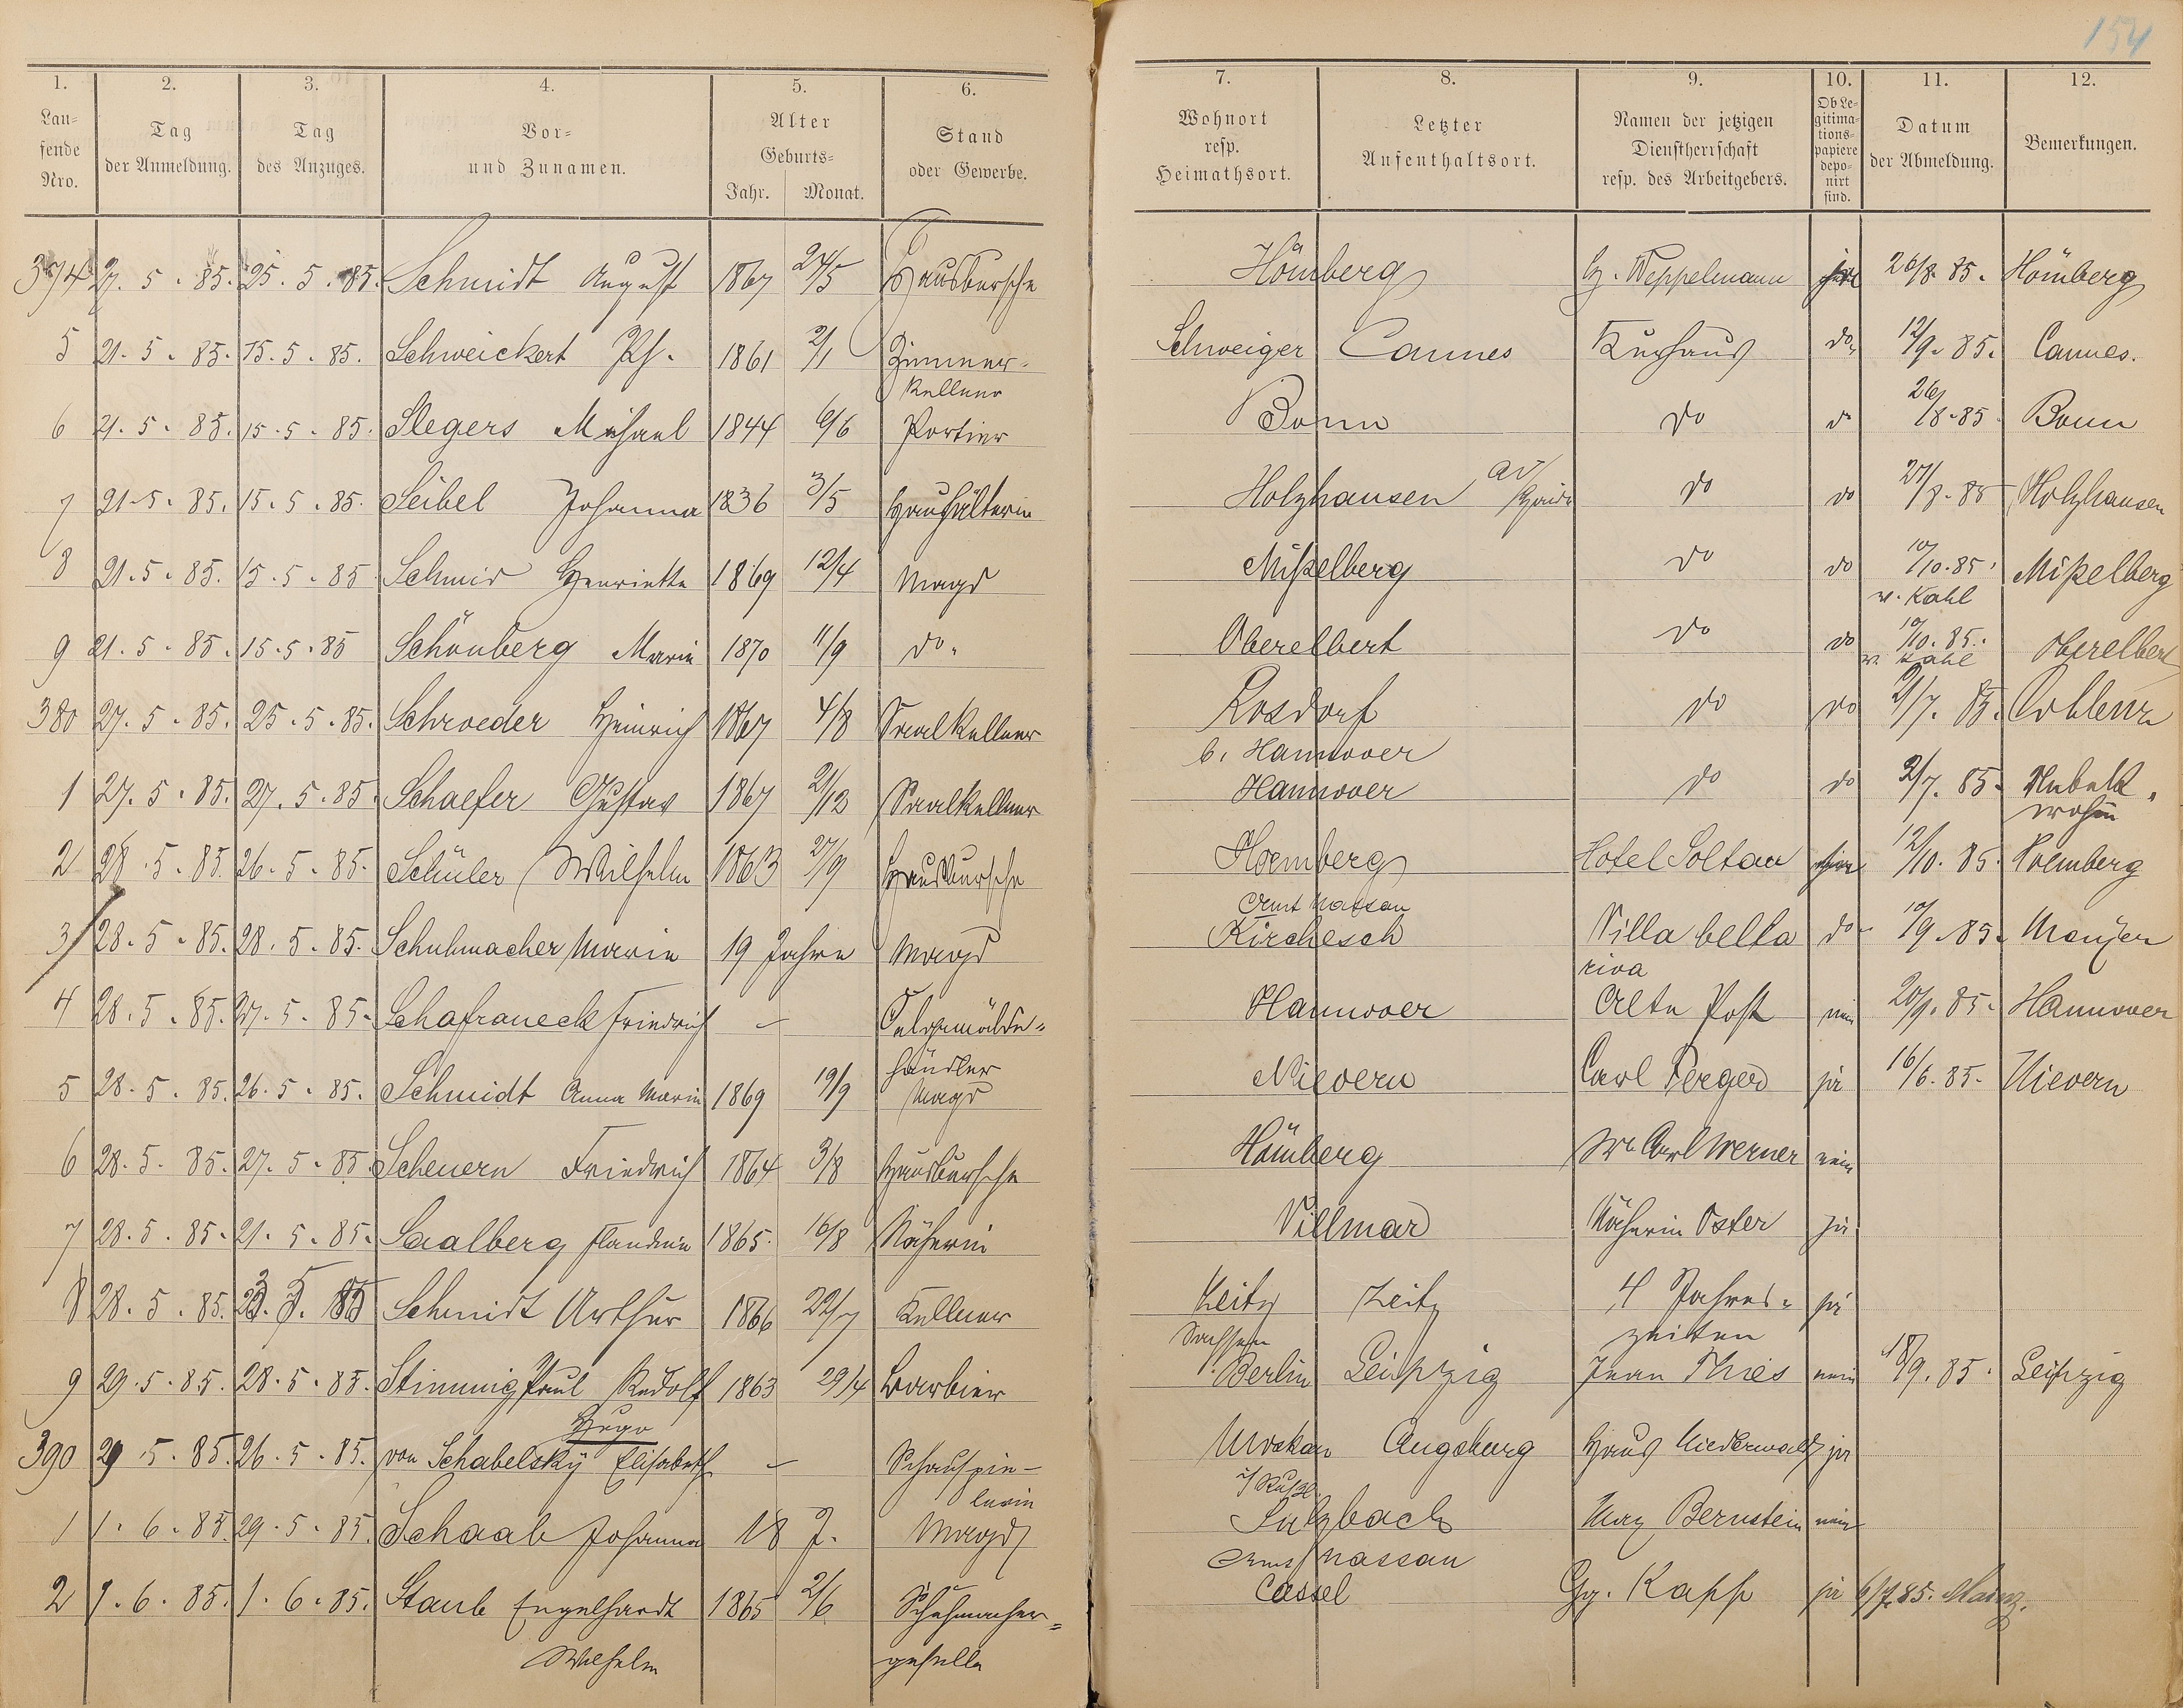 154
1. 2. 3. 4. 5. 6. 7. 8. 9. 10. 11. 12.
Lau-
fende
Nro.
Tag
der Anmeldung.
Tag
des Anzuges.
Vor-
und Zunamen.
Alter
Geburts-
Jahr. Monat.
Stand
oder Gewerbe.
Wohnort
resp.
Heimathsort.
Letzter
Aufenthaltsort.
Namen der jetzigen
Dienstherrschaft
resp. des Arbeitgebers.
Ob Le-
gitima-
tions-
papiere
depo-
nirt
sind.
Datum
der Abmeldung.
Bemerkungen.
374 27. 5. 85. 25. 5. 85. Schmidt August 1867 24/5 Hausbursche Hömberg H. Weppelmann 26/8 85. Hömberg
5 21. 5. 85. 15. 5. 85. Schweickert 1861 2/1 Zimmer- Schweiger Cannes Kurhaus do 12/9. 85. Cannes.
kellner
6 21. 5. 85. 15. 5. 85. Slegers Michael 1844 6/6 Portier Bonn do do 26/8. 85 Bonn
7 21. 5. 85. 15. 5. 85. Seibel Johanna 1836 3/5 Haushälterin Holzhausen a/d Haide do do 27/8. 85 Holzhausen
8 21. 5. 85. 15. 5. 85 Schmid Henriette 1869 12/4 Magd Mißelberg do do 10/10. 85. Mißelberg
w. Kahl
9 21. 5. 85. 15. 5. 85 Schönberg Marie 1870 11/9 do. Oberelbert do do 10/10. 85. Oberelbert
w. Kahl
380 27. 5. 85. 25. 5. 85. Schroeder Heinrich 1867 4/8 Saalkellner Rosdorf do do 2/7. 85. Coblenz
b. Hannover
1 27. 5. 85. 27. 5. 85. Schaefer Gustav 1867 21/12 Saalkellner Hannover do do 2/7. 85. Unbek.
wohin
2 28. 5. 85. 26. 5. 85. Schüler Wilhelm 1863 27/9 Hausbursche Hoemberg Hotel Soltau 12/10. 85. Hoemberg
Amt Nassau
3 28. 5. 85. 28. 5. 85. Schuhmacher Marie 19 Jahre Magd Kirchesch Villa bella do 10/9. 85.
riva
4 28. 5. 85. 27. 5. 85. Schafraneck Friedrich – Oelgemälde- Hannover Alte Post nein 20/9. 85. Hannover
händler
5 28. 5. 85. 26. 5. 85. Schmidt Anna Marie 1869 19/9 Magd Nievern Carl Berger ja 16/6. 85. Nievern
6 28. 5. 85. 27. 5. 85 Scheuern Friedrich 1864 3/8 Hausbursche Hömberg Ww. Carl Werner nein
7 28. 5. 85. 21. 5. 85. Saalberg 1865. 16/8 Näherin Villmar Näherin Oster ja
8 28. 5. 85. 23. 5. 85 Schmidt Arthur 1866 22/7 Kellner Zeitz Zeitz 4 Jahres- ja
Sachsen zeiten
9 29. 5. 85. 28. 5. 85. Stimmig Paul Rudolf 1863 29/4 Barbier Berlin Leipzig Jean Thies nein 18/9. 85. Leipzig
Hugo
390 29. 5. 85. 26. 5. 85. von Schabelsky Elisabeth – Schauspie- Moskau Augsburg Haus Niederwald ja
lerin i/ Rußl.
1 1. 6. 85. 29. 5. 85. Schaab Johanna 18 J. Magd Sulzbach Max Bernstein nein
Amt Nassau
2 1. 6. 85. 1. 6. 85. Staub Engelhardt 1865 2/6 Schuhmacher- Cassel Gg. Kapp ja 6/7. 85. Mainz.
Wilhelm geselle